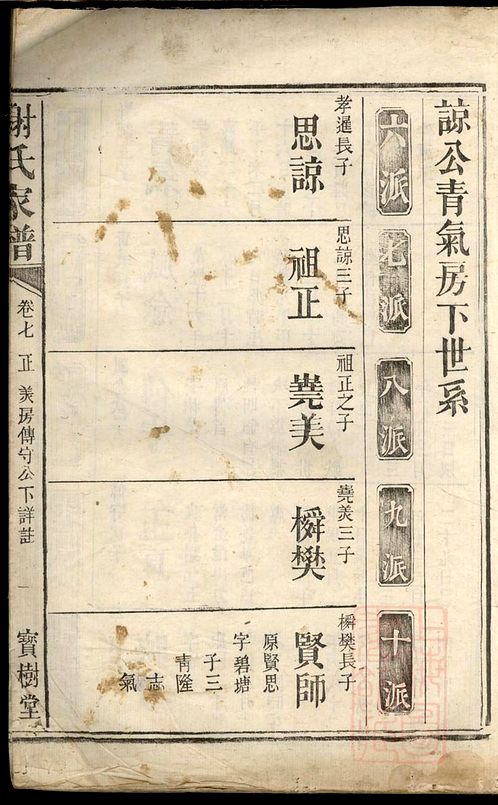 諒公青氣房下世系
六派
七派
八派
九派
十派
孝暹長子
思諒
思諒三子
祖正
祖正之子
堯美
堯美三子
橓樊
橓樊長子
賢師
原賢思
字碧塘
子三
青隆
志
氣
謝氏家譜
卷七 正 美房傳守公下詳註
一
寶樹堂